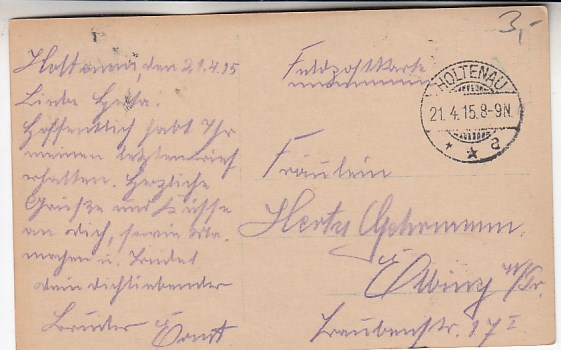 3,-
Holtenau, den 21.4.15
Liebe Herta.
Hoffentlich habt Ihr
meinen letzten Brief
erhalten. Herzliche
Grüße und Küsse
an Dich, sowie
u. Trudel
Dein Dichliebender
Bruder Ernst
Feldpostkarte
HOLTENAU
21.4.15.8-9N.
* ★ a
Fräulein
Elbing W/Pr.
Traubenstr. 17 I